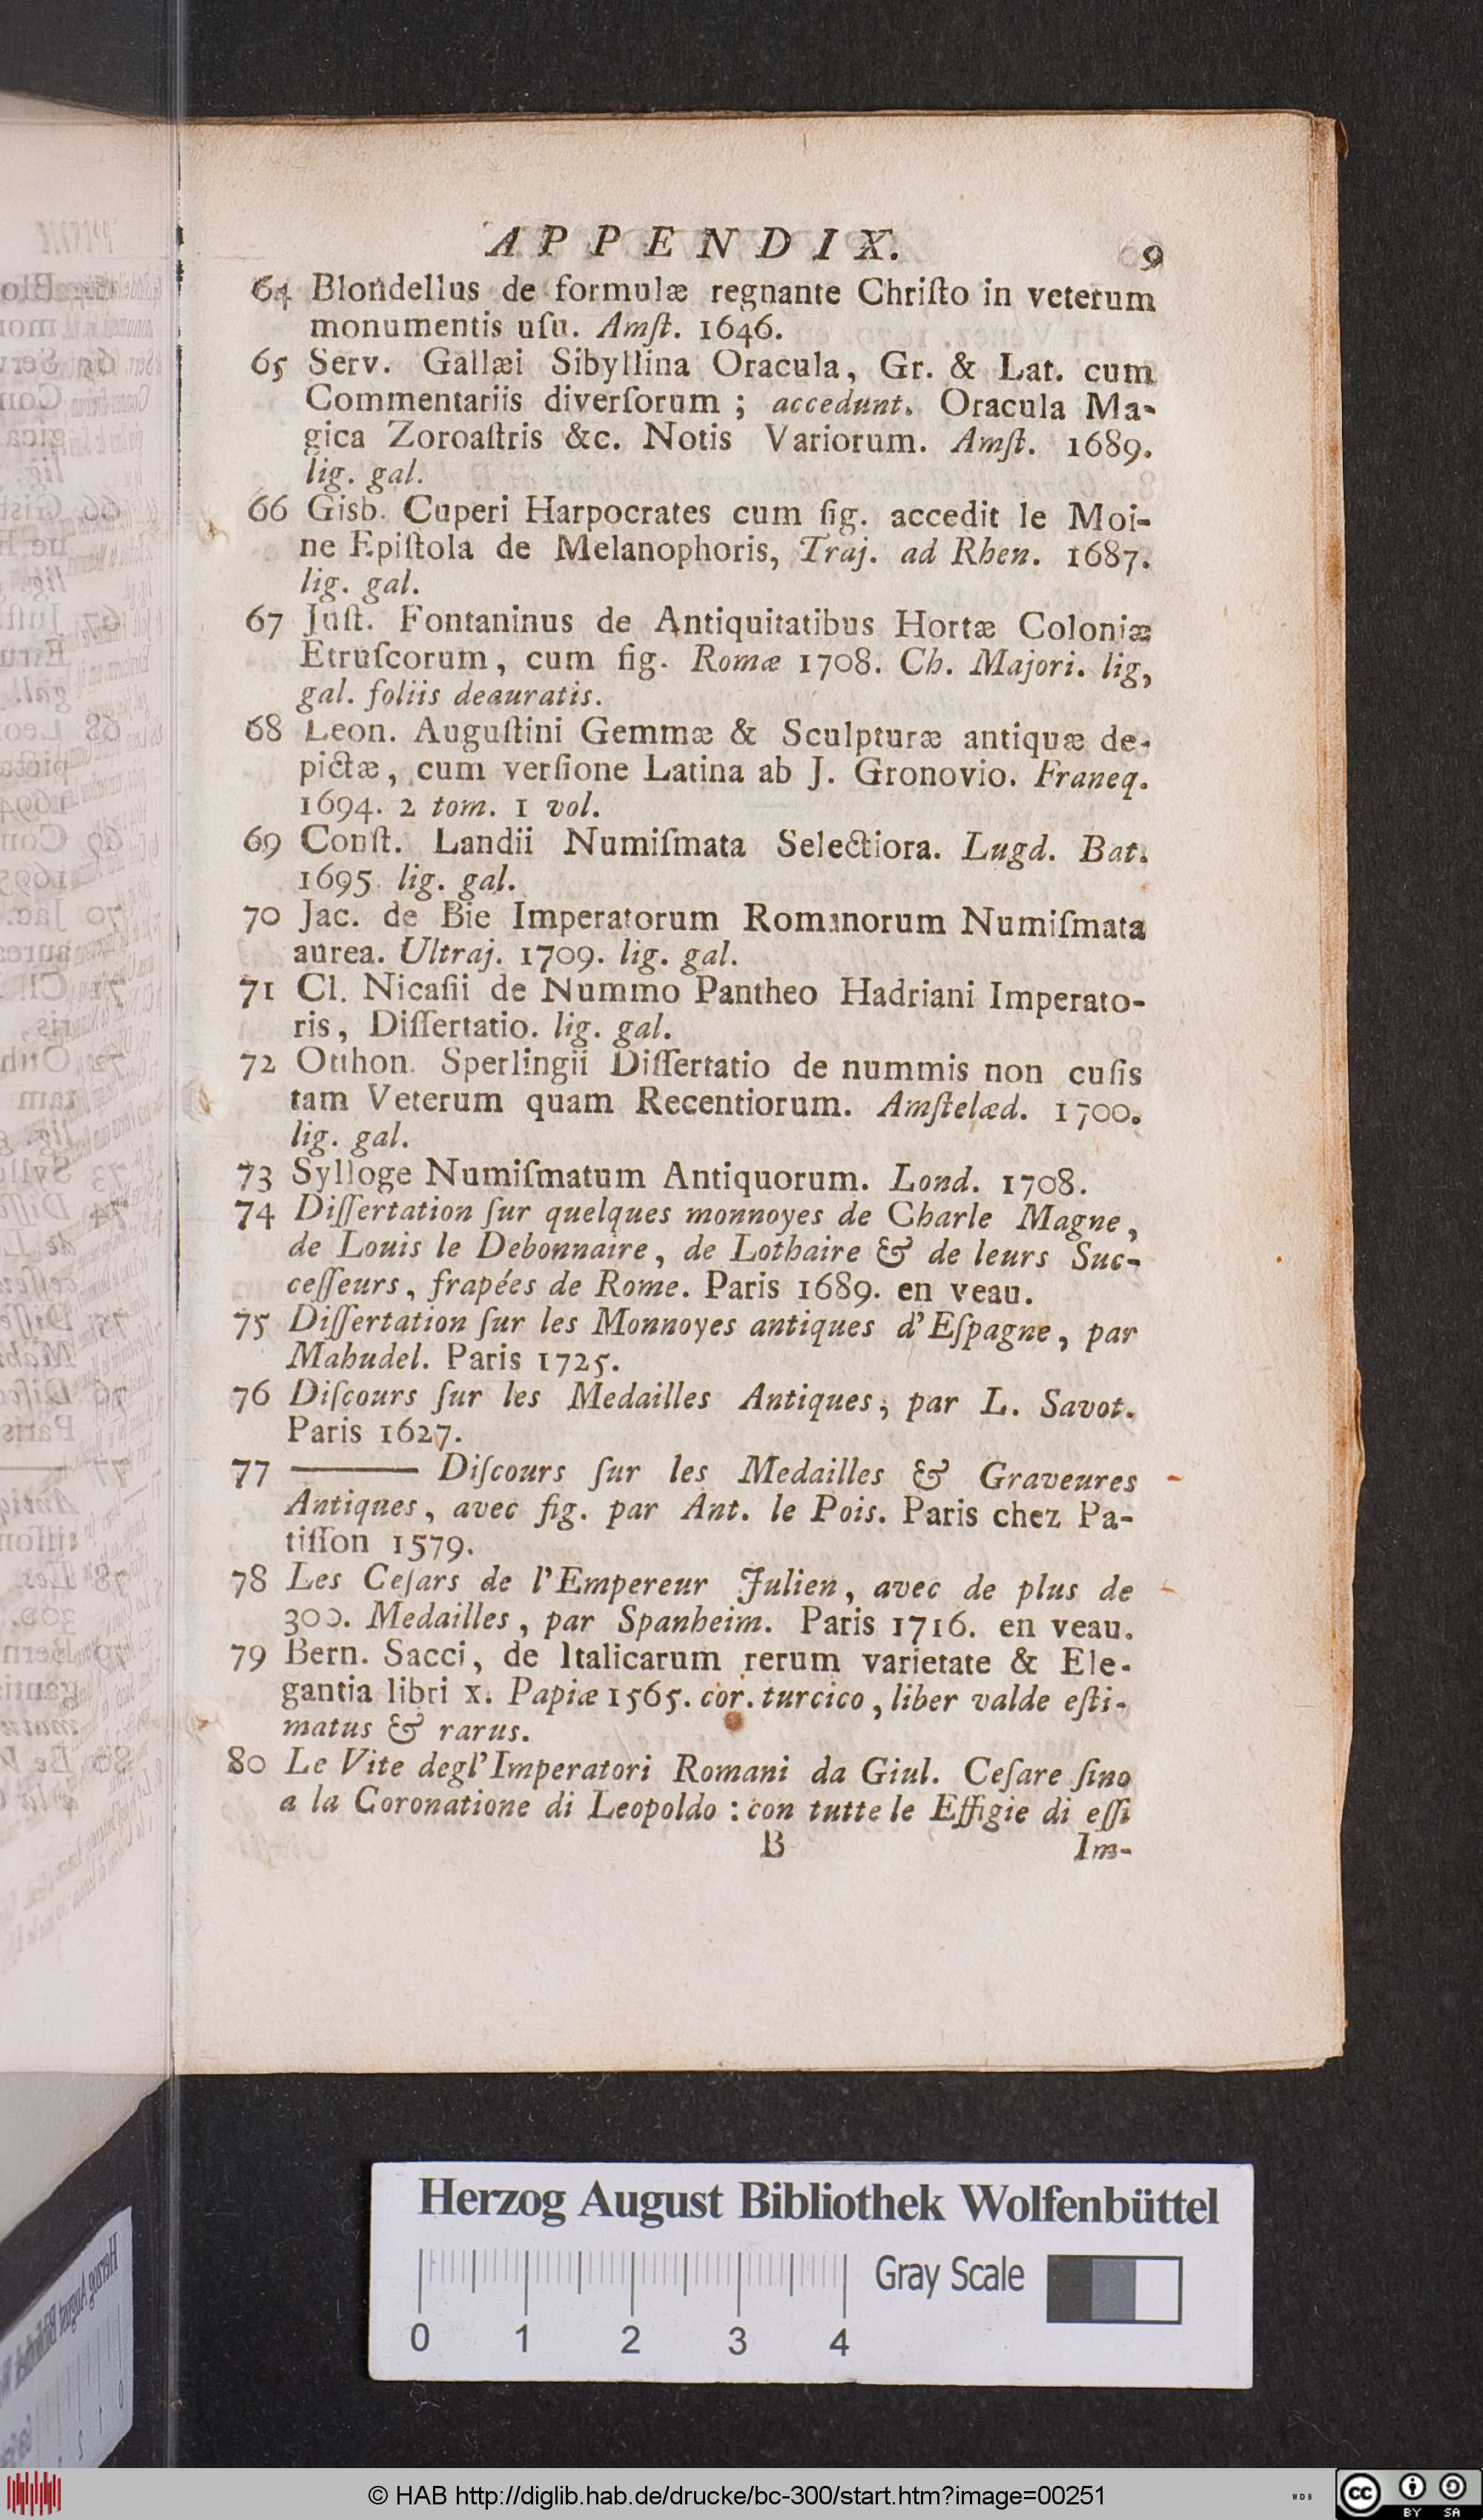 APPENDIX. 9
64 Blondellus de formulæ regnante Chriſto in veterum
monumentis uſu. Amſt. 1646.
65 Serv. Gallæi Sibyllina Oracula, Gr. & Lat. cum
Commentariis diverſorum ; accedunt. Oracula Ma-
gica Zoroaſtris &c. Notis Variorum. Amſt. 1689.
lig. gal.
66 Gisb. Cuperi Harpocrates cum fig. accedit le Moi-
ne Epiſtola de Melanophoris, Traj. ad Rhen. 1687.
lig. gal.
67 Juſt. Fontaninus de Antiquitatibus Hortæ Coloniæ
Etruſcorum, cum fig. Romæ 1708. Ch. Majori. lig,
gal. foliis deauratis.
68 Leon. Auguſtini Gemmæ & Sculpturæ antiquæ de-
pictæ, cum verſione Latina ab J. Gronovio. Franeq.
1694. 2 tom. 1 vol.
69 Conſt. Landii Numiſmata Selectiora. Lugd. Bat.
1695. lig. gal.
70 Jac. de Bie Imperatorum Romanorum Numiſmata
aurea. Ultraj. 1709. lig. gal.
71 Cl. Nicaſii de Nummo Pantheo Hadriani Imperato-
ris, Diſſertatio. lig. gal.
72 Otthon. Sperlingii Diſſertatio de nummis non cuſis
tam Veterum quam Recentiorum. Amſtelæd. 1700.
lig. gal.
73 Sylloge Numiſmatum Antiquorum. Lond. 1708.
74 Diſſertation ſur quelques monnoyes de Charle Magne,
de Louis le Debonnaire, de Lothaire & de leurs Suc-
ceſſeurs, frapées de Rome. Paris 1689. en veau.
75 Diſſertation ſur les Monnoyes antiques d'Eſpagne, par
Mahudel. Paris 1725.
76 Diſcours ſur les Medailles Antiques, par L. Savot.
Paris 1627.
77 ——— Diſcours ſur les Medailles & Graveures
Antiques, avec fig. par Ant. le Pois. Paris chez Pa-
tiſſon 1579.
78 Les Ceſars de l'Empereur Julien, avec de plus de
300. Medailles, par Spanheim. Paris 1716. en veau.
79 Bern. Sacci, de Italicarum rerum varietate & Ele-
gantia libri x. Papiæ 1565. cor. turcico, liber valde eſti-
matus & rarus.
80 Le Vite degl'Imperatori Romani da Giul. Ceſare ſino
a la Coronatione di Leopoldo : con tutte le Effigie di eſſi
B Im-
Herzog August Bibliothek Wolfenbüttel
Gray Scale
0 1 2 3 4
© HAB http://diglib.hab.de/drucke/bc-300/start.htm?image=00251
WDB
cc BY SA